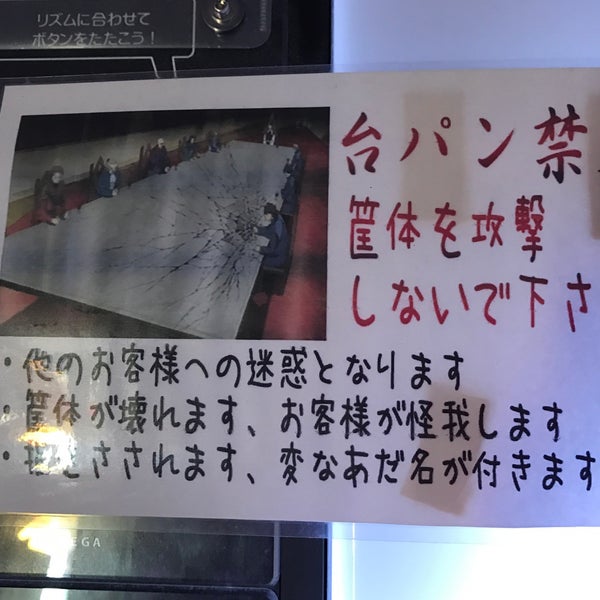 リズムに合わせて
ボタンをたたこう！
台パン禁
筐体を攻撃
しないで下さ
・他のお客様への迷惑となります
・筐体が壊れます、お客様が怪我します
・指をさされます、変なあだ名が付きます
EGA